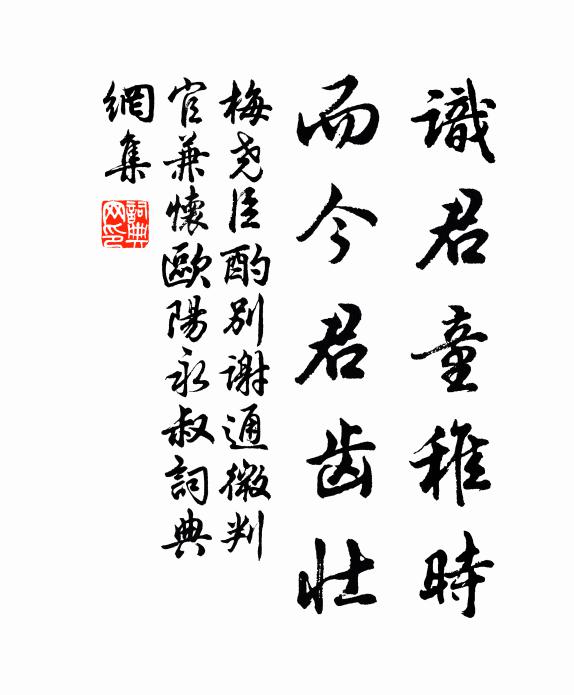 識君童稚時
而今君齿壮
梅尧臣酌别谢通微判
官兼懷歐陽永叔詞典
網集
詞典
网印